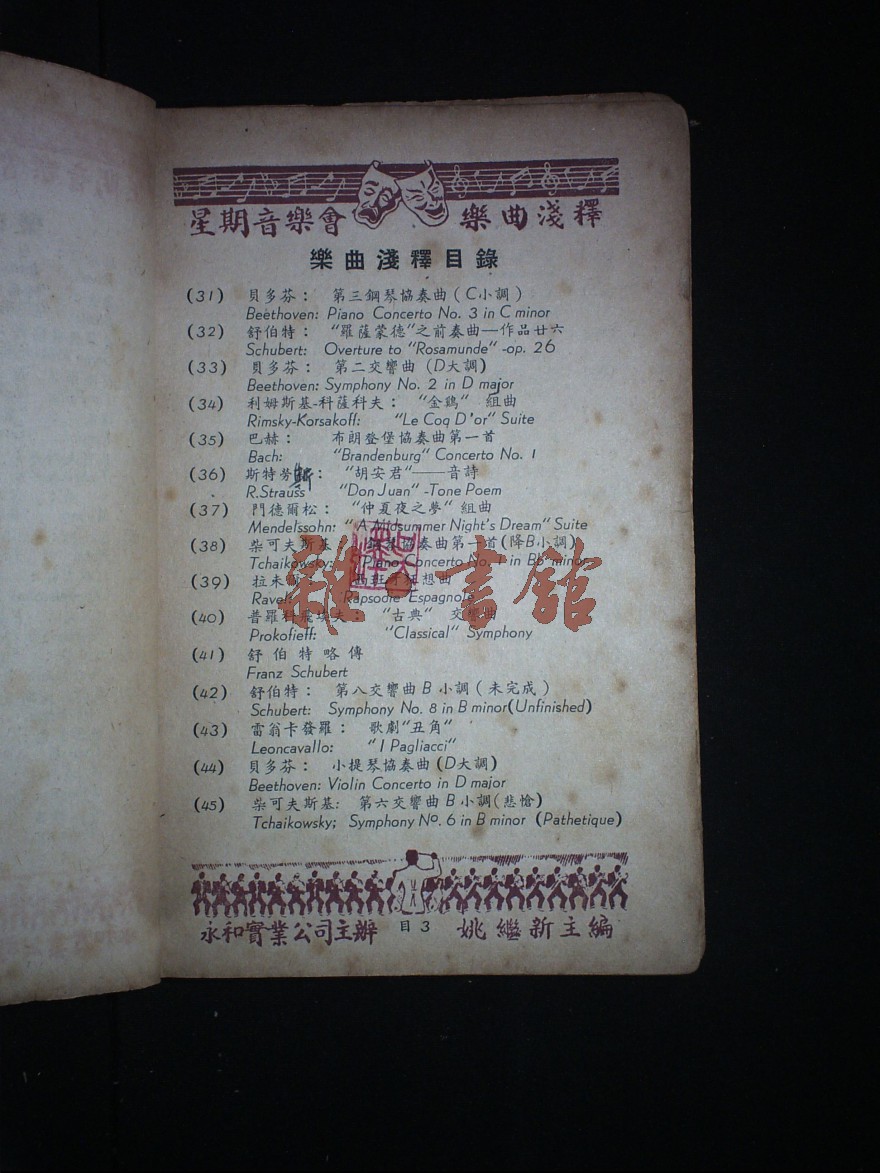 星期音樂會 樂曲淺釋
樂曲淺釋目錄
(31) 貝多芬： 第三鋼琴協奏曲（C小調）
Beethoven: Piano Concerto No. 3 in C minor
(32) 舒伯特： "羅薩蒙德"之前奏曲—作品廿六
Schubert: Overture to "Rosamunde" -op. 26
(33) 貝多芬： 第二交響曲（D大調）
Beethoven: Symphony No. 2 in D major
(34) 利姆斯基-科薩科夫： "金鷄" 組曲
Rimsky-Korsakoff: "Le Coq D'or" Suite
(35) 巴赫： 布朗登堡協奏曲第一首
Bach: "Brandenburg" Concerto No. 1
(36) 斯特勞斯： "胡安君"——音詩
R.Strauss "Don Juan" -Tone Poem
(37) 門德爾松： "仲夏夜之夢" 組曲
Mendelssohn: "A Midsummer Night's Dream" Suite
(38) 柴可夫斯基 鋼琴協奏曲第一首(降B小調)
Tchaikowsky: Piano Concerto No. 1 in Bb minor
(39) 拉 狂想曲
Ravel: Rapsodie Espagnole
(40) 普羅科 夫： "古典" 交響曲
Prokofieff: "Classical" Symphony
(41) 舒伯特略傳
Franz Schubert
(42) 舒伯特： 第八交響曲B小調（未完成）
Schubert: Symphony No. 8 in B minor(Unfinished)
(43) 雷翁卡發羅： 歌劇"丑角"
Leoncavallo: "I Pagliacci"
(44) 貝多芬： 小提琴協奏曲（D大調）
Beethoven: Violin Concerto in D major
(45) 柴可夫斯基: 第六交響曲B小調(悲愴)
Tchaikowsky; Symphony No. 6 in B minor (Pathetique)
雜書館
永和實業公司主辦 目3 姚繼新主編